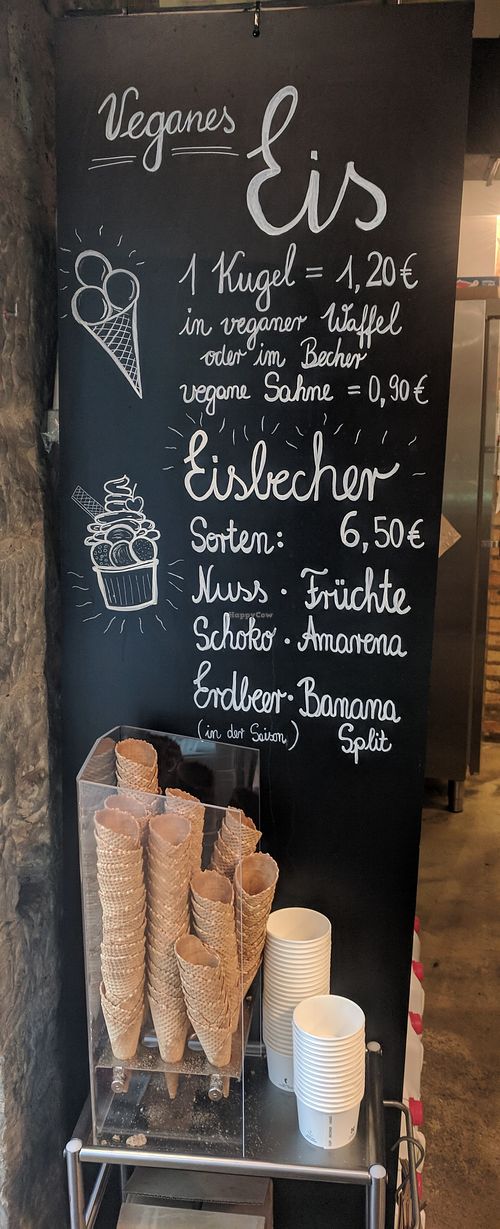 Veganes
Eis
1 Kugel = 1,20€
in veganer Waffel
oder im Becher
vegane Sahne = 0,90€
Eisbecher
Sorten: 6,50€
Nuss · Früchte
HappyCow
Schoko · Amarena
Erdbeer · Banana
(in der Saison) Split